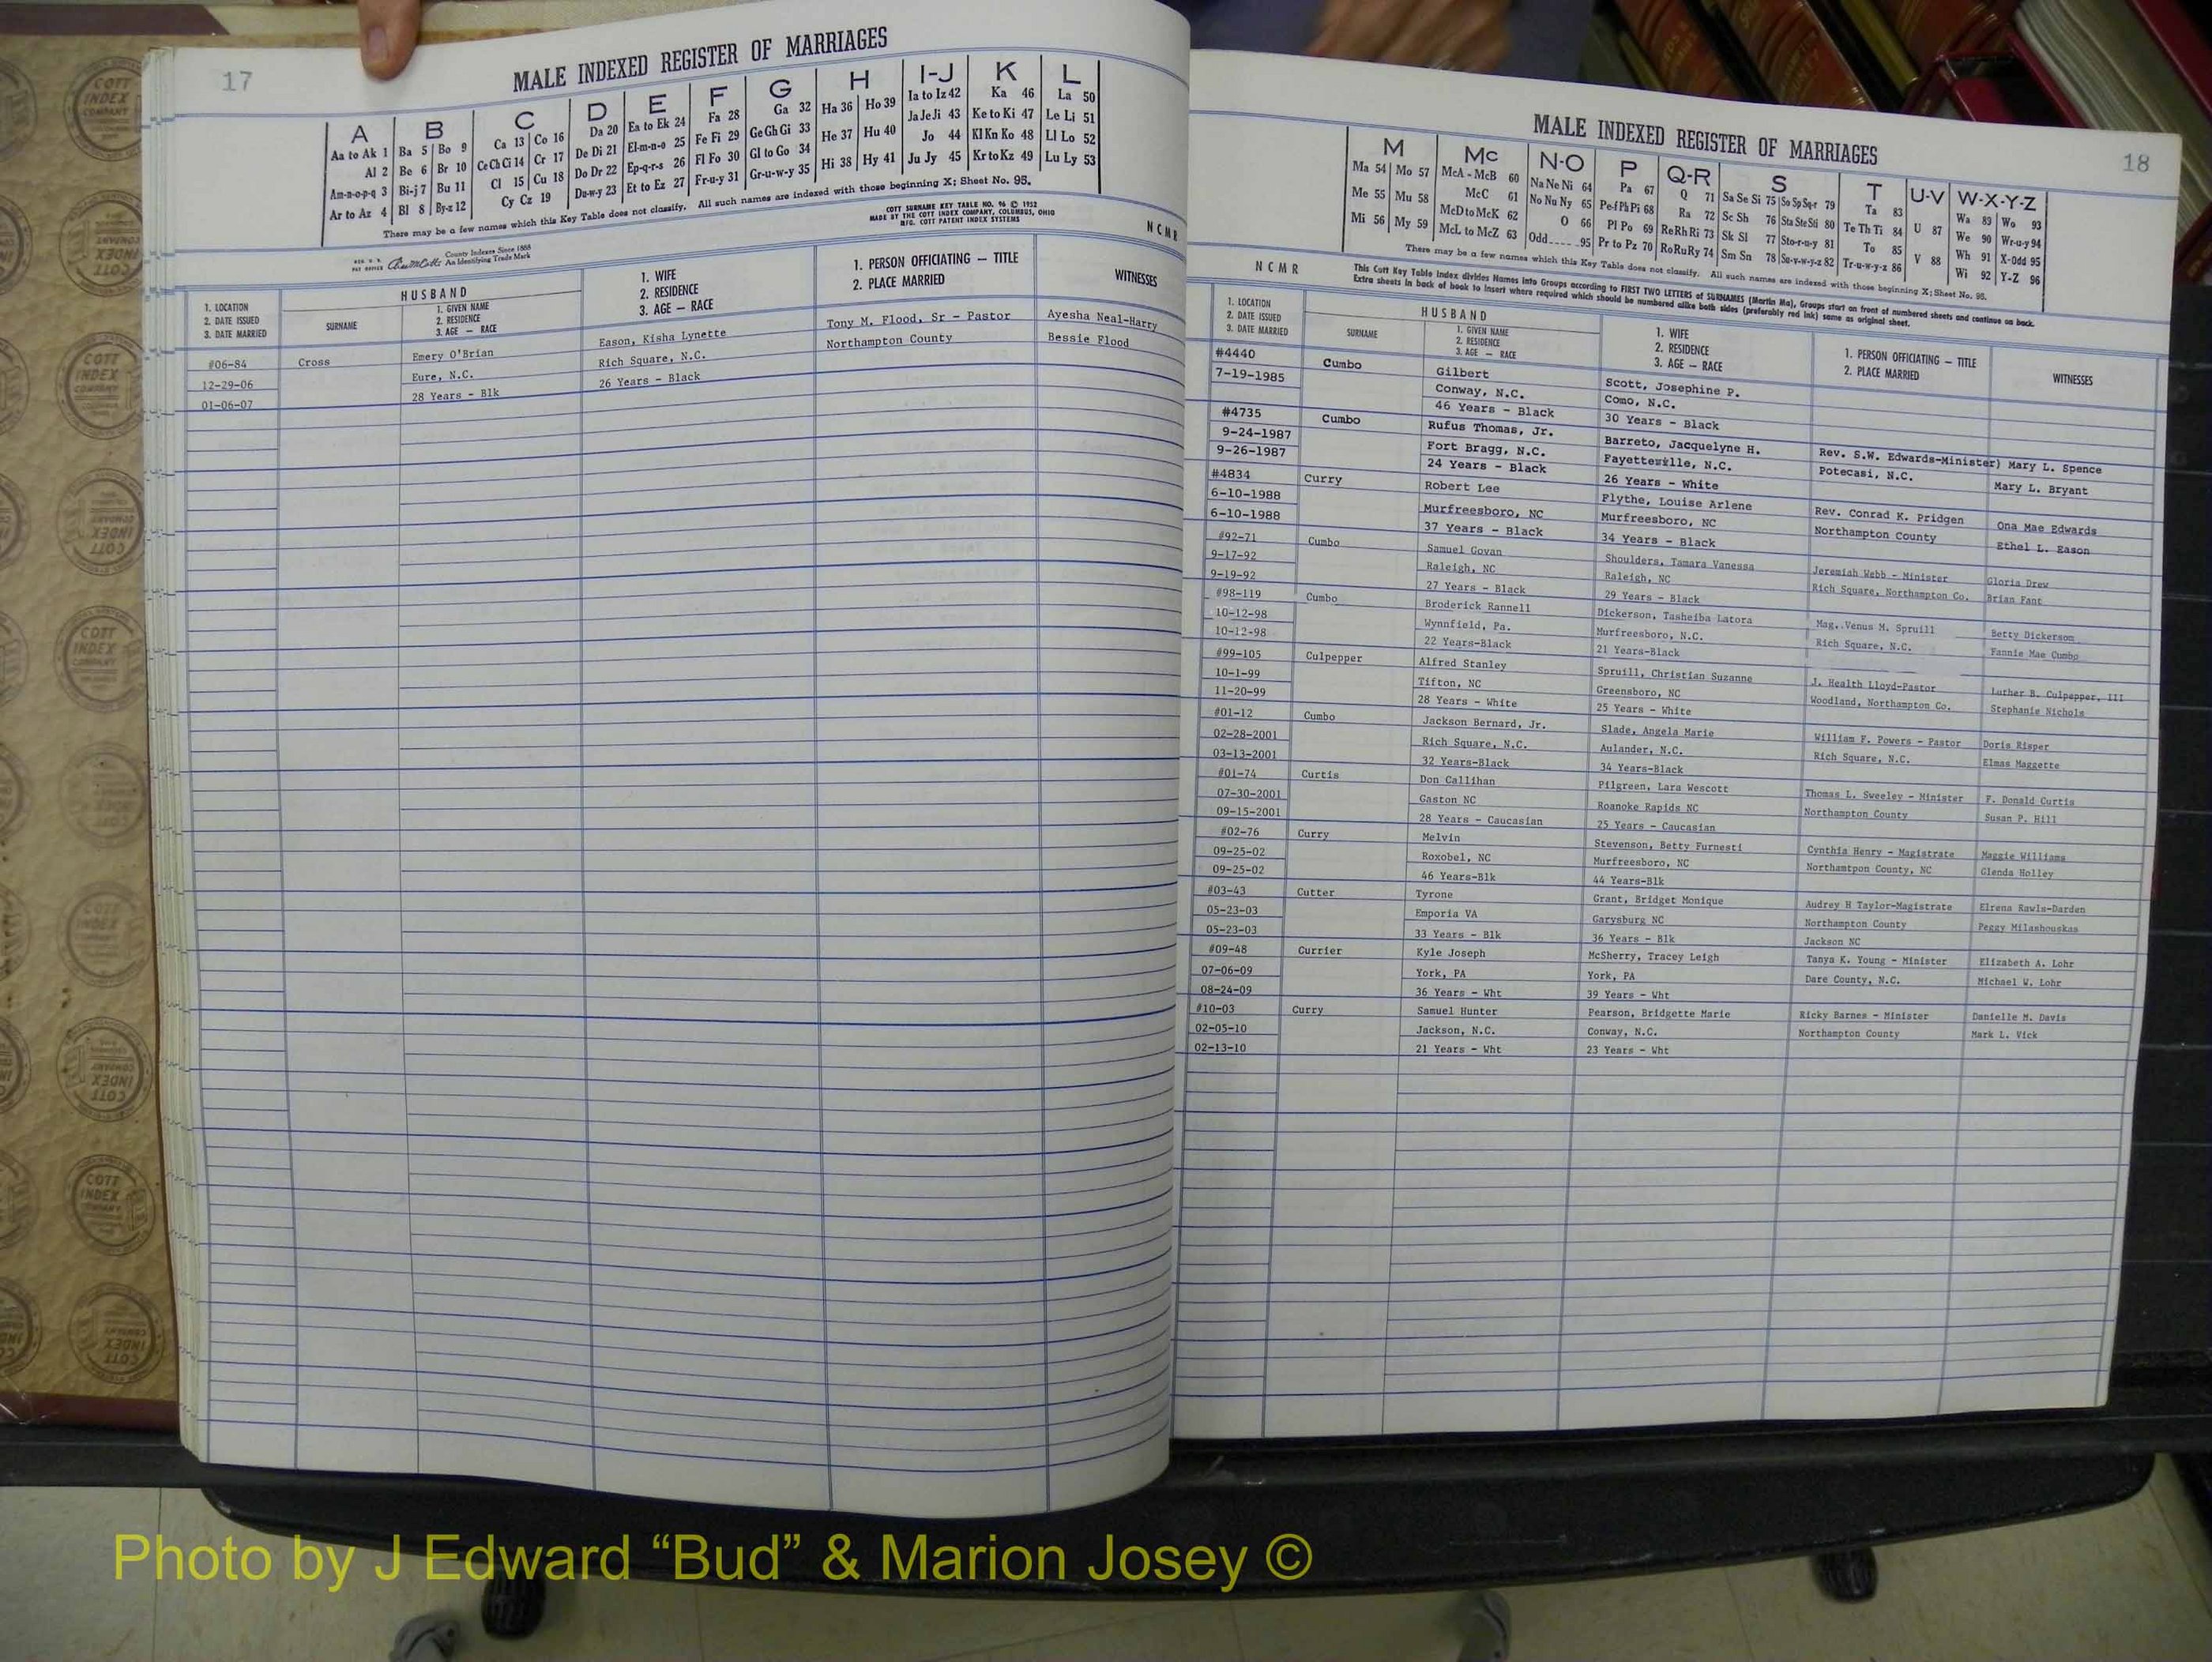 17
MALE INDEXED REGISTER OF MARRIAGES
A B C D E F G H I-J K L
Aa to Ak 1 Ba 5 Bo 9 Ca 13 Co 16 Da 20 Ea to Ek 24 Fa 28 Ga 32 Ha 36 Ho 39 Ia to Iz 42 Ka 46 La 50
Al 2 Be 6 Br 10 Ce Ch Ci 14 Cr 17 De Di 21 El-m-n-o 25 Fe Fi 29 Ge Gh Gi 33 He 37 Hu 40 Ja Je Ji 43 Ke to Ki 47 Le Li 51
Am-n-o-p-q 3 Bi-j 7 Bu 11 Cl 15 Cu 18 Do Dr 22 Ep-q-r-s 26 Fl Fo 30 Gl to Go 34 Hi 38 Hy 41 Jo 44 Kl Kn Ko 48 Ll Lo 52
Ar to Az 4 Bl 8 By-z 12 Cy Cz 19 Du-w-y 23 Et to Ez 27 Fr-u-y 31 Gr-u-w-y 35 Ju Jy 45 Kr to Kz 49 Lu Ly 53
There may be a few names which this Key Table does not classify. All such names are indexed with those beginning X; Sheet No. 95.
COTT SURNAME KEY TABLE NO. 96 © 1952
MADE BY THE COTT INDEX COMPANY, COLUMBUS, OHIO
MFG. COTT PATENT INDEX SYSTEMS
NCMR
County Indexes Since 1888
An Identifying Trade Mark
1. LOCATION
2. DATE ISSUED
3. DATE MARRIED
HUSBAND
SURNAME
1. GIVEN NAME
2. RESIDENCE
3. AGE — RACE
1. WIFE
2. RESIDENCE
3. AGE — RACE
1. PERSON OFFICIATING — TITLE
2. PLACE MARRIED
WITNESSES
#06-84 Cross Emery O'Brian Eason, Kisha Lynette Tony M. Flood, Sr - Pastor Ayesha Neal-Harry
12-29-06 Eure, N.C. Rich Square, N.C. Northampton County Bessie Flood
01-06-07 28 Years - Blk 26 Years - Black
MALE INDEXED REGISTER OF MARRIAGES
18
M Mc N-O P Q-R S T U-V W-X-Y-Z
Ma 54 Mo 57 McA - McB 60 Na Ne Ni 64 Pa 67 Q 71 Sa Se Si 75 So Sp Sq-r 79 Ta 83 U 87 Wa 89 Wo 93
Me 55 Mu 58 McC 61 No Nu Ny 65 Pe-f Ph Pi 68 Ra 72 Sc Sh 76 Sta Ste Sti 80 Te Th Ti 84 V 88 We 90 Wr-u-y 94
Mi 56 My 59 McD to McK 62 O 66 Pl Po 69 Re Rh Ri 73 Sk Sl 77 Sto-r-u-y 81 To 85 Wh 91 X-Odd 95
McL to McZ 63 Odd 95 Pr to Pz 70 Ro Ru Ry 74 Sm Sn 78 Su-v-w-y-z 82 Tr-u-w-y-z 86 Wi 92 Y-Z 96
There may be a few names which this Key Table does not classify. All such names are indexed with those beginning X; Sheet No. 95.
NCMR
This Cott Key Table Index divides Names into Groups according to FIRST TWO LETTERS of SURNAMES (Martin Ma), Groups start on front of numbered sheets and continue on back.
Extra sheets in back of book to insert where required which should be numbered alike both sides (preferably red ink) same as original sheet.
1. LOCATION
2. DATE ISSUED
3. DATE MARRIED
HUSBAND
SURNAME
1. GIVEN NAME
2. RESIDENCE
3. AGE — RACE
1. WIFE
2. RESIDENCE
3. AGE — RACE
1. PERSON OFFICIATING — TITLE
2. PLACE MARRIED
WITNESSES
#4440 Cumbo Gilbert Scott, Josephine P.
7-19-1985 Conway, N.C. Como, N.C.
46 Years - Black 30 Years - Black
#4735 Cumbo Rufus Thomas, Jr. Barreto, Jacquelyne H. Rev. S.W. Edwards-Minister) Mary L. Spence
9-24-1987 Fort Bragg, N.C. Fayetteville, N.C. Potecasi, N.C. Mary L. Bryant
9-26-1987 24 Years - Black 26 Years - White
#4834 Curry Robert Lee Flythe, Louise Arlene Rev. Conrad K. Pridgen Ona Mae Edwards
6-10-1988 Murfreesboro, NC Murfreesboro, NC Northampton County Ethel L. Eason
6-10-1988 37 Years - Black 34 Years - Black
#92-71 Cumbo Samuel Govan Shoulders, Tamara Vanessa Jeremiah Webb - Minister Gloria Drew
9-17-92 Raleigh, NC Raleigh, NC Rich Square, Northampton Co. Brian Fant
9-19-92 27 Years - Black 29 Years - Black
#98-119 Cumbo Broderick Rannell Dickerson, Tasheiba Latora Mag. Venus M. Spruill Betty Dickerson
10-12-98 Wynnfield, Pa. Murfreesboro, N.C. Rich Square, N.C. Fannie Mae Cumbo
10-12-98 22 Years-Black 21 Years-Black
#99-105 Culpepper Alfred Stanley Spruill, Christian Suzanne J. Health Lloyd-Pastor Luther B. Culpepper, III
10-1-99 Tifton, NC Greensboro, NC Woodland, Northampton Co. Stephanie Nichols
11-20-99 28 Years - White 25 Years - White
#01-12 Cumbo Jackson Bernard, Jr. Slade, Angela Marie William F. Powers - Pastor Doris Risper
02-28-2001 Rich Square, N.C. Aulander, N.C. Rich Square, N.C. Elmas Maggette
03-13-2001 32 Years-Black 34 Years-Black
#01-74 Curtis Don Callihan Pilgreen, Lara Wescott Thomas L. Sweeley - Minister F. Donald Curtis
07-30-2001 Gaston NC Roanoke Rapids NC Northampton County Susan P. Hill
09-15-2001 28 Years - Caucasian 25 Years - Caucasian
#02-76 Curry Melvin Stevenson, Betty Furnesti Cynthia Henry - Magistrate Maggie Williams
09-25-02 Roxobel, NC Murfreesboro, NC Northamtpon County, NC Glenda Holley
09-25-02 46 Years-Blk 44 Years-Blk
#03-43 Cutter Tyrone Grant, Bridget Monique Audrey H Taylor-Magistrate Elrena Rawls-Darden
05-23-03 Emporia VA Garysburg NC Northampton County Peggy Milashouskas
05-23-03 33 Years - Blk 36 Years - Blk Jackson NC
#09-48 Currier Kyle Joseph McSherry, Tracey Leigh Tanya K. Young - Minister Elizabeth A. Lohr
07-06-09 York, PA York, PA Dare County, N.C. Michael W. Lohr
08-24-09 36 Years - Wht 39 Years - Wht
#10-03 Curry Samuel Hunter Pearson, Bridgette Marie Ricky Barnes - Minister Danielle M. Davis
02-05-10 Jackson, N.C. Conway, N.C. Northampton County Mark L. Vick
02-13-10 21 Years - Wht 23 Years - Wht
Photo by J Edward “Bud” & Marion Josey ©